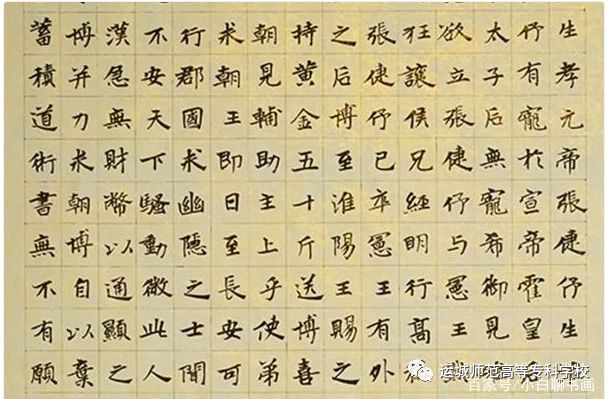 生孝元帝張倢伃生
伃有寵於宣帝霍皇
太子后無寵希御見
欲立張倢伃与憲王
狂讓侯兄經明行高
張倢伃已卒憲王有外
之后博至淮陽王賜之
持黃金五十斤送博喜
朝見輔助主上乎使弟
求朝王即日至長安可
行郡國求幽隱之士聞
不安天下騷動微此人
漢急無財幣以通顯之
博并力求朝博自以棄
蓄積道術書無不有願
运城师范高等专科学校
百家号/小白聊书画